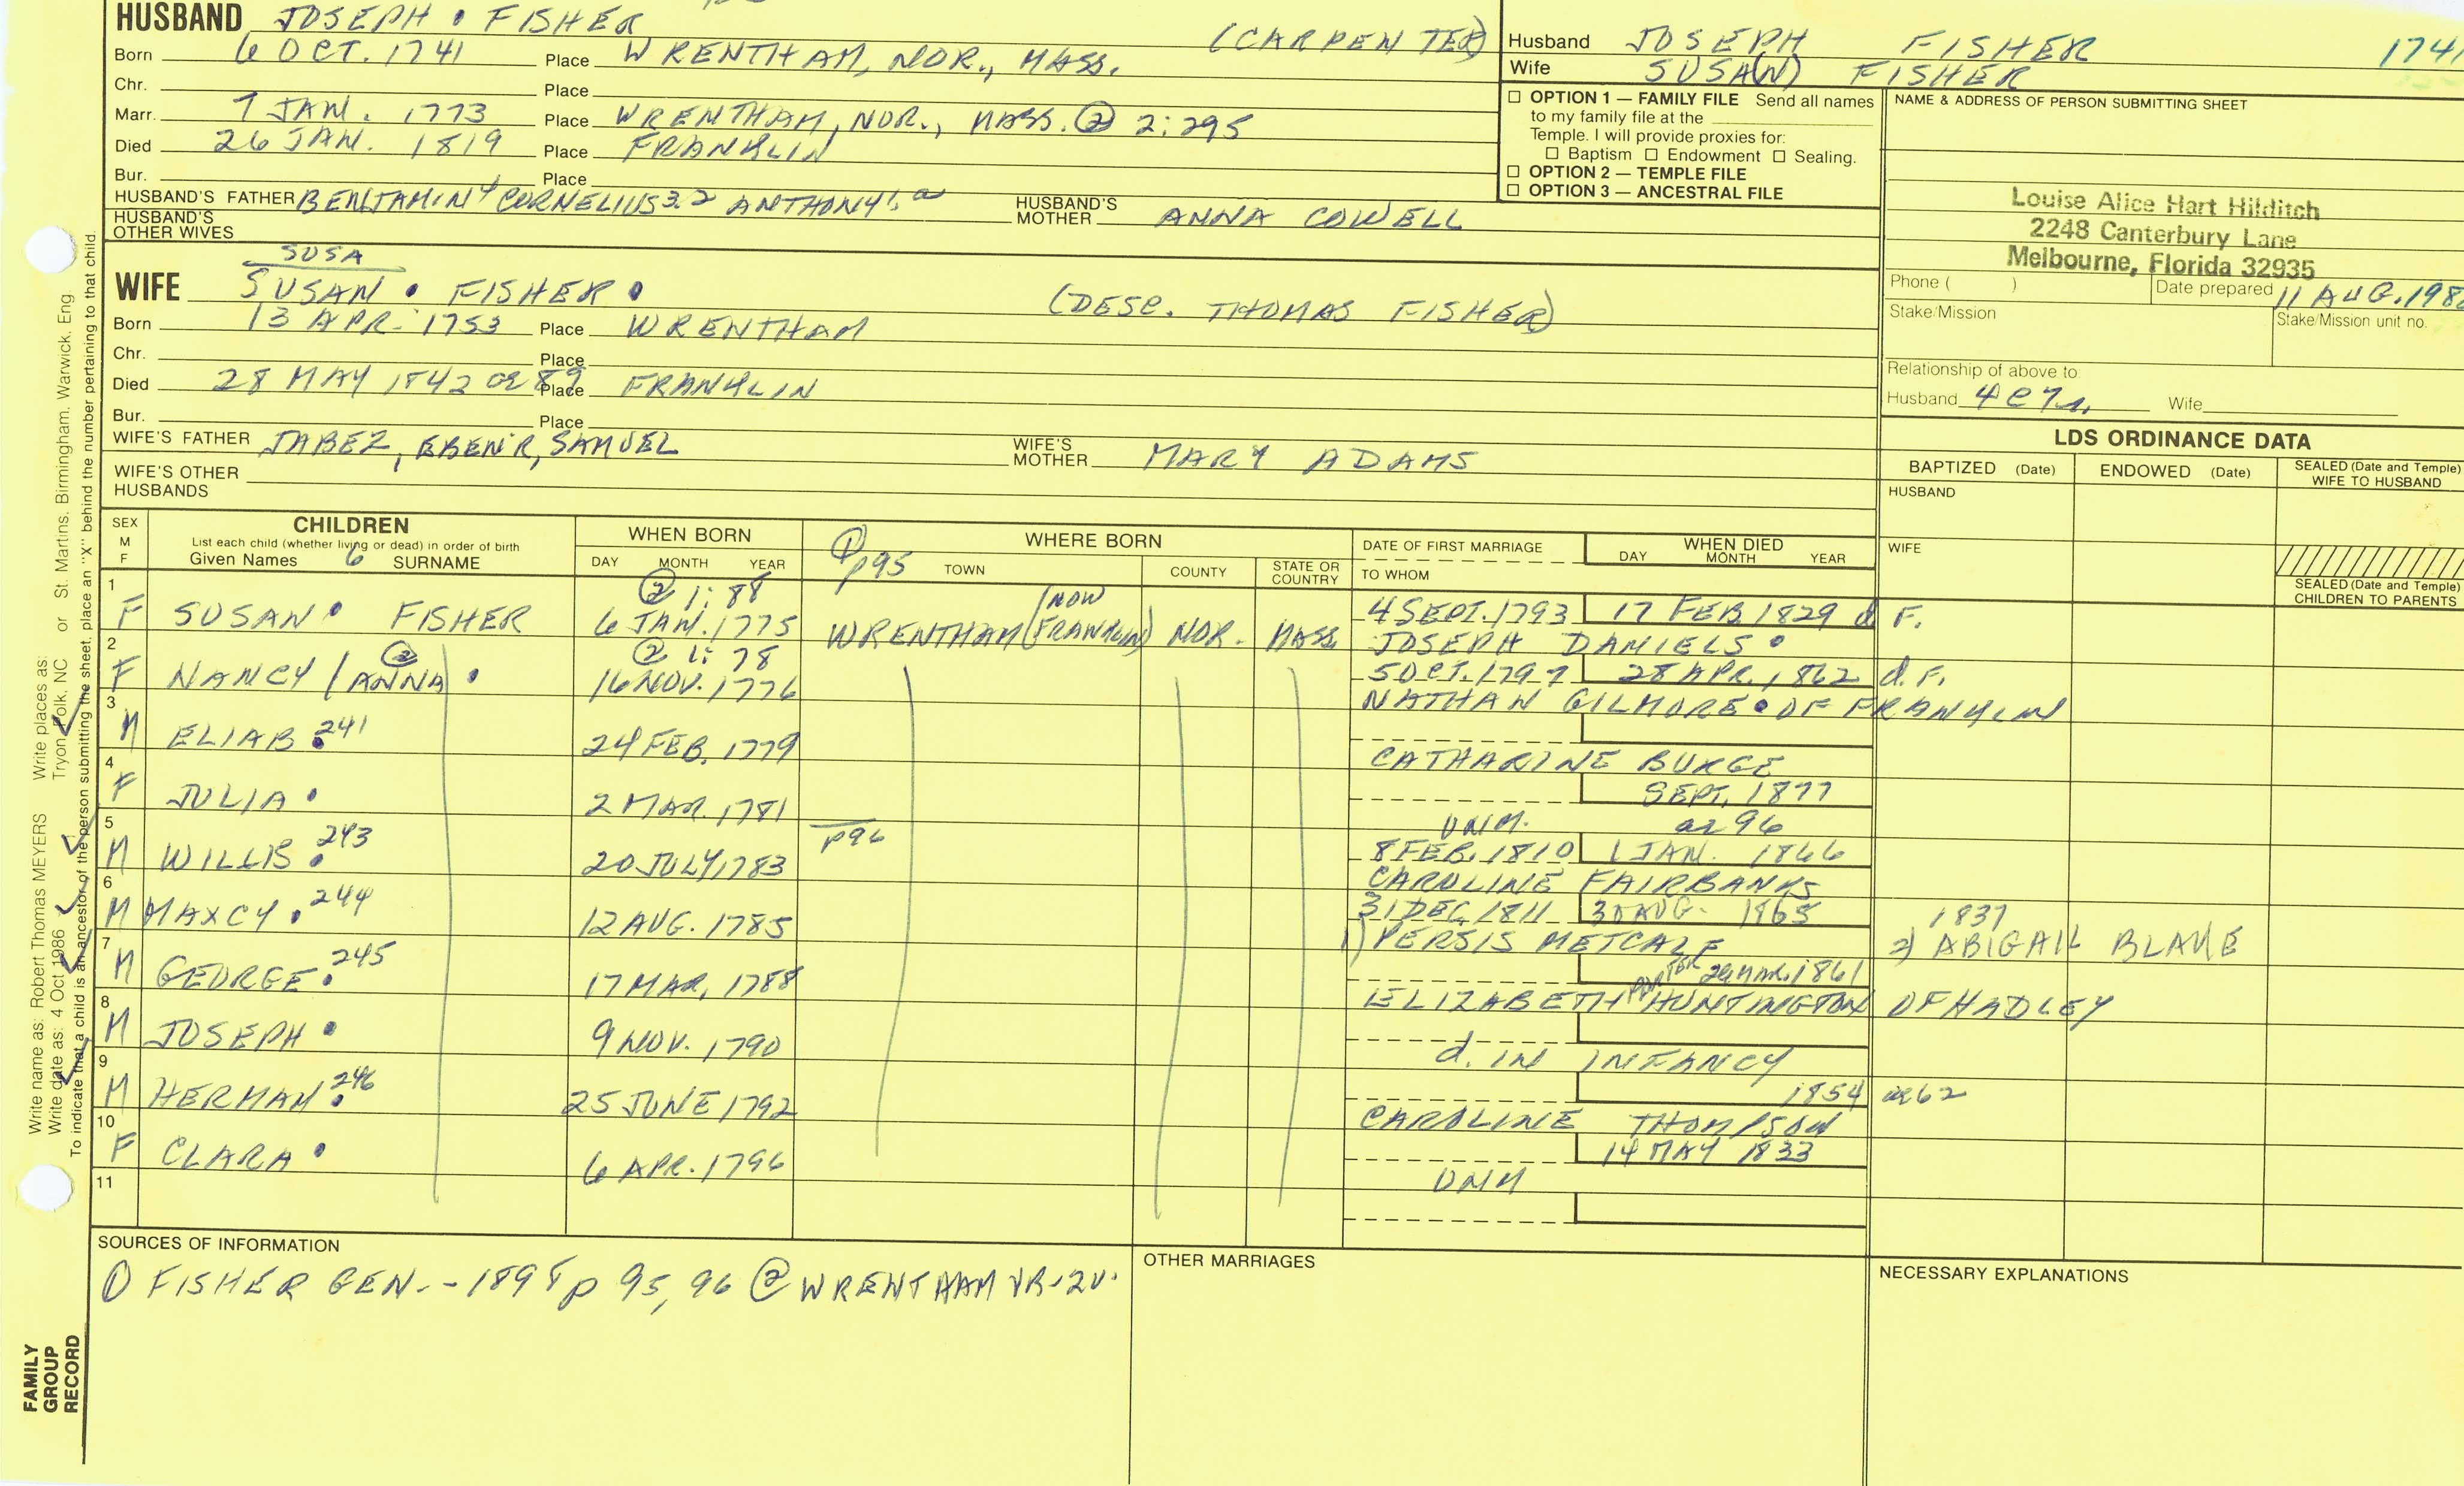 HUSBAND JOSEPH • FISHER (CARPENTER)
Born 6 OCT. 1741 Place WRENTHAM, NOR., MASS.
Chr. Place
Marr. 7 JAN. 1773 Place WRENTHAM, NOR., MASS. ② 2:295
Died 26 JAN. 1819 Place FRANKLIN
Bur. Place
HUSBAND'S FATHER BENJAMIN4 CORNELIUS3.2 ANTHONY1. HUSBAND'S MOTHER ANNA COWELL
HUSBAND'S OTHER WIVES
SUSA
WIFE SUSAN • FISHER • (DESC. THOMAS FISHER)
Born 13 APR. 1753 Place WRENTHAM
Chr. Place
Died 28 MAY 1842 ae 89 Place FRANKLIN
Bur. Place
WIFE'S FATHER JABEZ, EBEN'R, SAMUEL WIFE'S MOTHER MARY ADAMS
WIFE'S OTHER HUSBANDS
Husband JOSEPH FISHER 1741
Wife SUSA(N) FISHER
☐ OPTION 1 — FAMILY FILE Send all names
to my family file at the
Temple. I will provide proxies for:
☐ Baptism ☐ Endowment ☐ Sealing.
☐ OPTION 2 — TEMPLE FILE
☐ OPTION 3 — ANCESTRAL FILE
NAME & ADDRESS OF PERSON SUBMITTING SHEET
Louise Alice Hart Hilditch
2248 Canterbury Lane
Melbourne, Florida 32935
Phone ( ) Date prepared 11 AUG. 198
Stake/Mission Stake/Mission unit no.
Relationship of above to:
Husband Wife
LDS ORDINANCE DATA
BAPTIZED (Date) ENDOWED (Date) SEALED (Date and Temple) WIFE TO HUSBAND
HUSBAND
WIFE
SEALED (Date and Temple) CHILDREN TO PARENTS
SEX M F
CHILDREN
List each child (whether living or dead) in order of birth
Given Names 6 SURNAME
WHEN BORN
DAY MONTH YEAR
① p95 WHERE BORN
TOWN COUNTY STATE OR COUNTRY
DATE OF FIRST MARRIAGE
TO WHOM
WHEN DIED
DAY MONTH YEAR
② 1:88
1 F SUSAN • FISHER 6 JAN. 1775 WRENTHAM (NOW FRANKLIN) NOR. MASS. 4 SEPT. 1793 17 FEB. 1829 d F.
JOSEPH DANIELS •
② 1:78
2 F NANCY / ANNA ② • 16 NOV. 1776 5 OCT. 1797 28 APR. 1862 d. F.
NATHAN GILMORE • OF FRANKLIN
3 M ELIAB • 241 24 FEB. 1779
CATHARINE BURGE
4 F JULIA • 2 MAR. 1781 SEPT. 1877
UNM. ae 96
p96
5 M WILLIS • 243 20 JULY 1783 8 FEB. 1810 1 JAN. 1866
CAROLINE FAIRBANKS
6 M MAXCY • 244 12 AUG. 1785 31 DEC. 1811 30 AUG. 1865 1837
1) PERSIS METCALF 2) ABIGAIL BLAKE
7 M GEORGE • 245 17 MAR. 1788 1861
ELIZABETH PORTER HUNTINGTON OF HADLEY
8 M JOSEPH • 9 NOV. 1790
d. IN INFANCY
9 M HERMAN • 246 25 JUNE 1792 1854 ae 62
CAROLINE THOMPSON
10 F CLARA • 6 APR. 1796 14 MAY 1833
UNM
11
SOURCES OF INFORMATION
① FISHER GEN. - 1898 p 95, 96 ② WRENTHAM VR-2V.
OTHER MARRIAGES
NECESSARY EXPLANATIONS
Write places as: Tryon, Polk, NC or St. Martins, Birmingham, Warwick, Eng.
Write name as: Robert Thomas MEYERS
Write date as: 4 Oct 1986
To indicate that a child is an ancestor of the person submitting the sheet, place an "X" behind the number pertaining to that child.
FAMILY
GROUP
RECORD